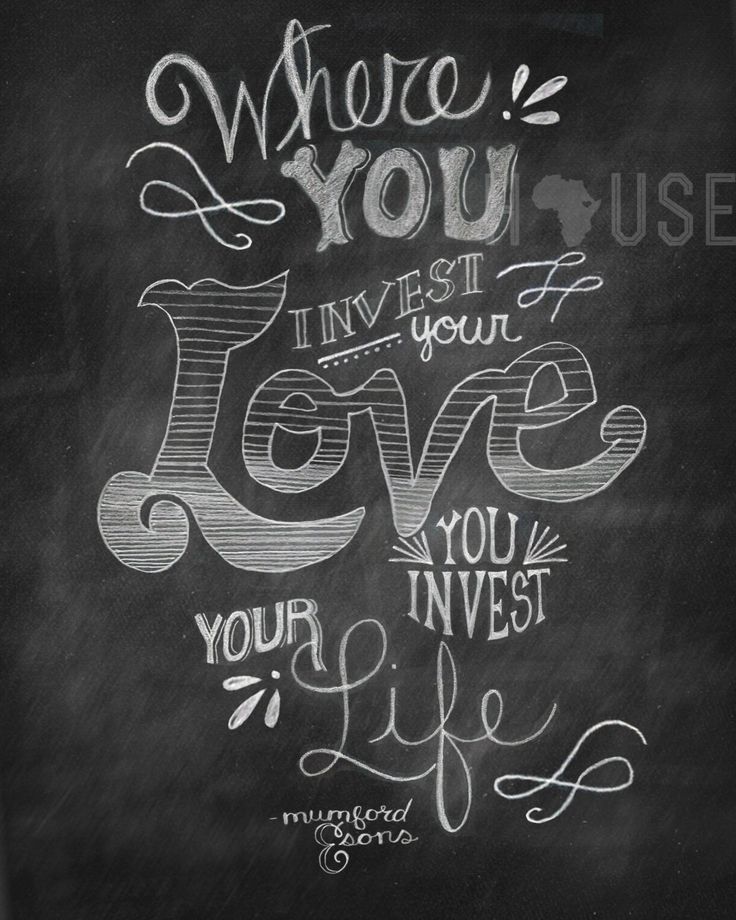 Where
YOU
H USE
INVEST
your
Love
YOU
INVEST
YOUR
Life
-mumford
& sons